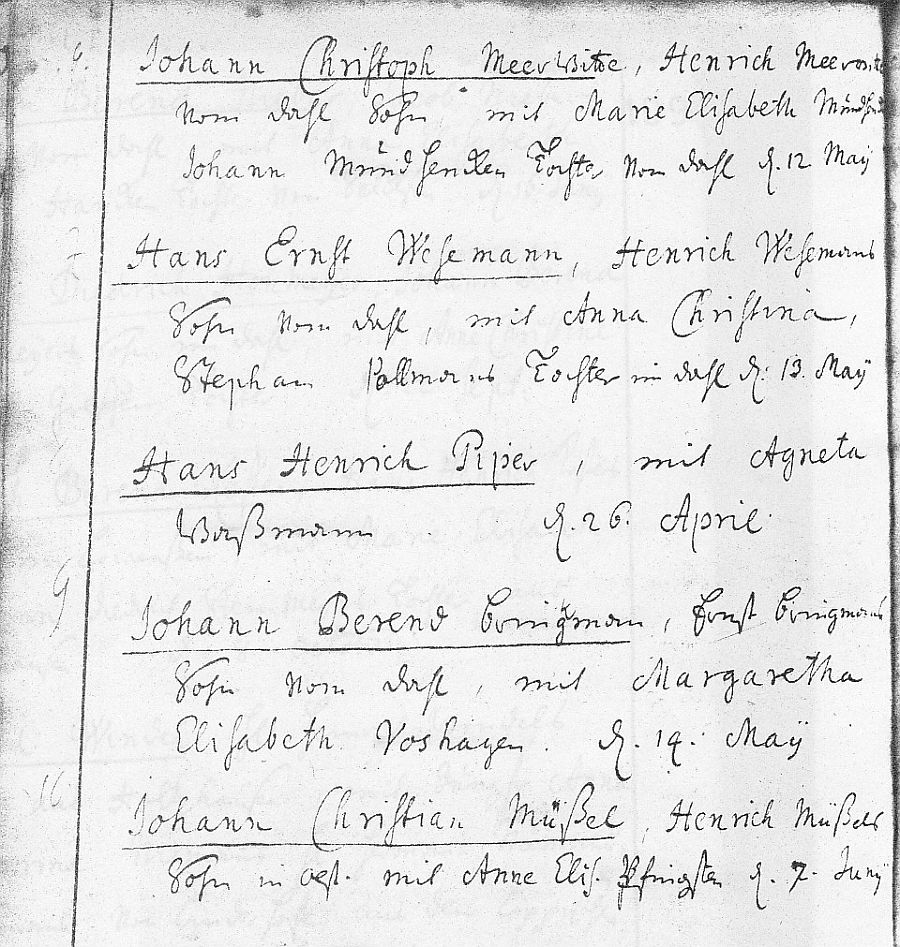 Johann Christoph Meerwitte, Henrich Meerwitte
vom dahl Sohn mit Marie Elisabeth
Johann Mündhencken Tochter vom dahl d. 12 Maÿ
7
Hans Ernst Wesemann, Henrich Wesemans
Sohn vom dahl, mit Anna Christina,
Stephan Pollmans Tochter im dahl d. 13. Maÿ
Hans Henrich Piper, mit Agneta
Waßmann d. 26. April.
9
Johann Berend Boringman, Ernst Boringmans
Sohn vom dahl, mit Margaretha
Elisabeth Voshagen. d. 19. Maÿ
Johann Christian Müßel, Henrich Müßels
Sohn in mit Anne Elis. Pfingsten d. 7. Junÿ